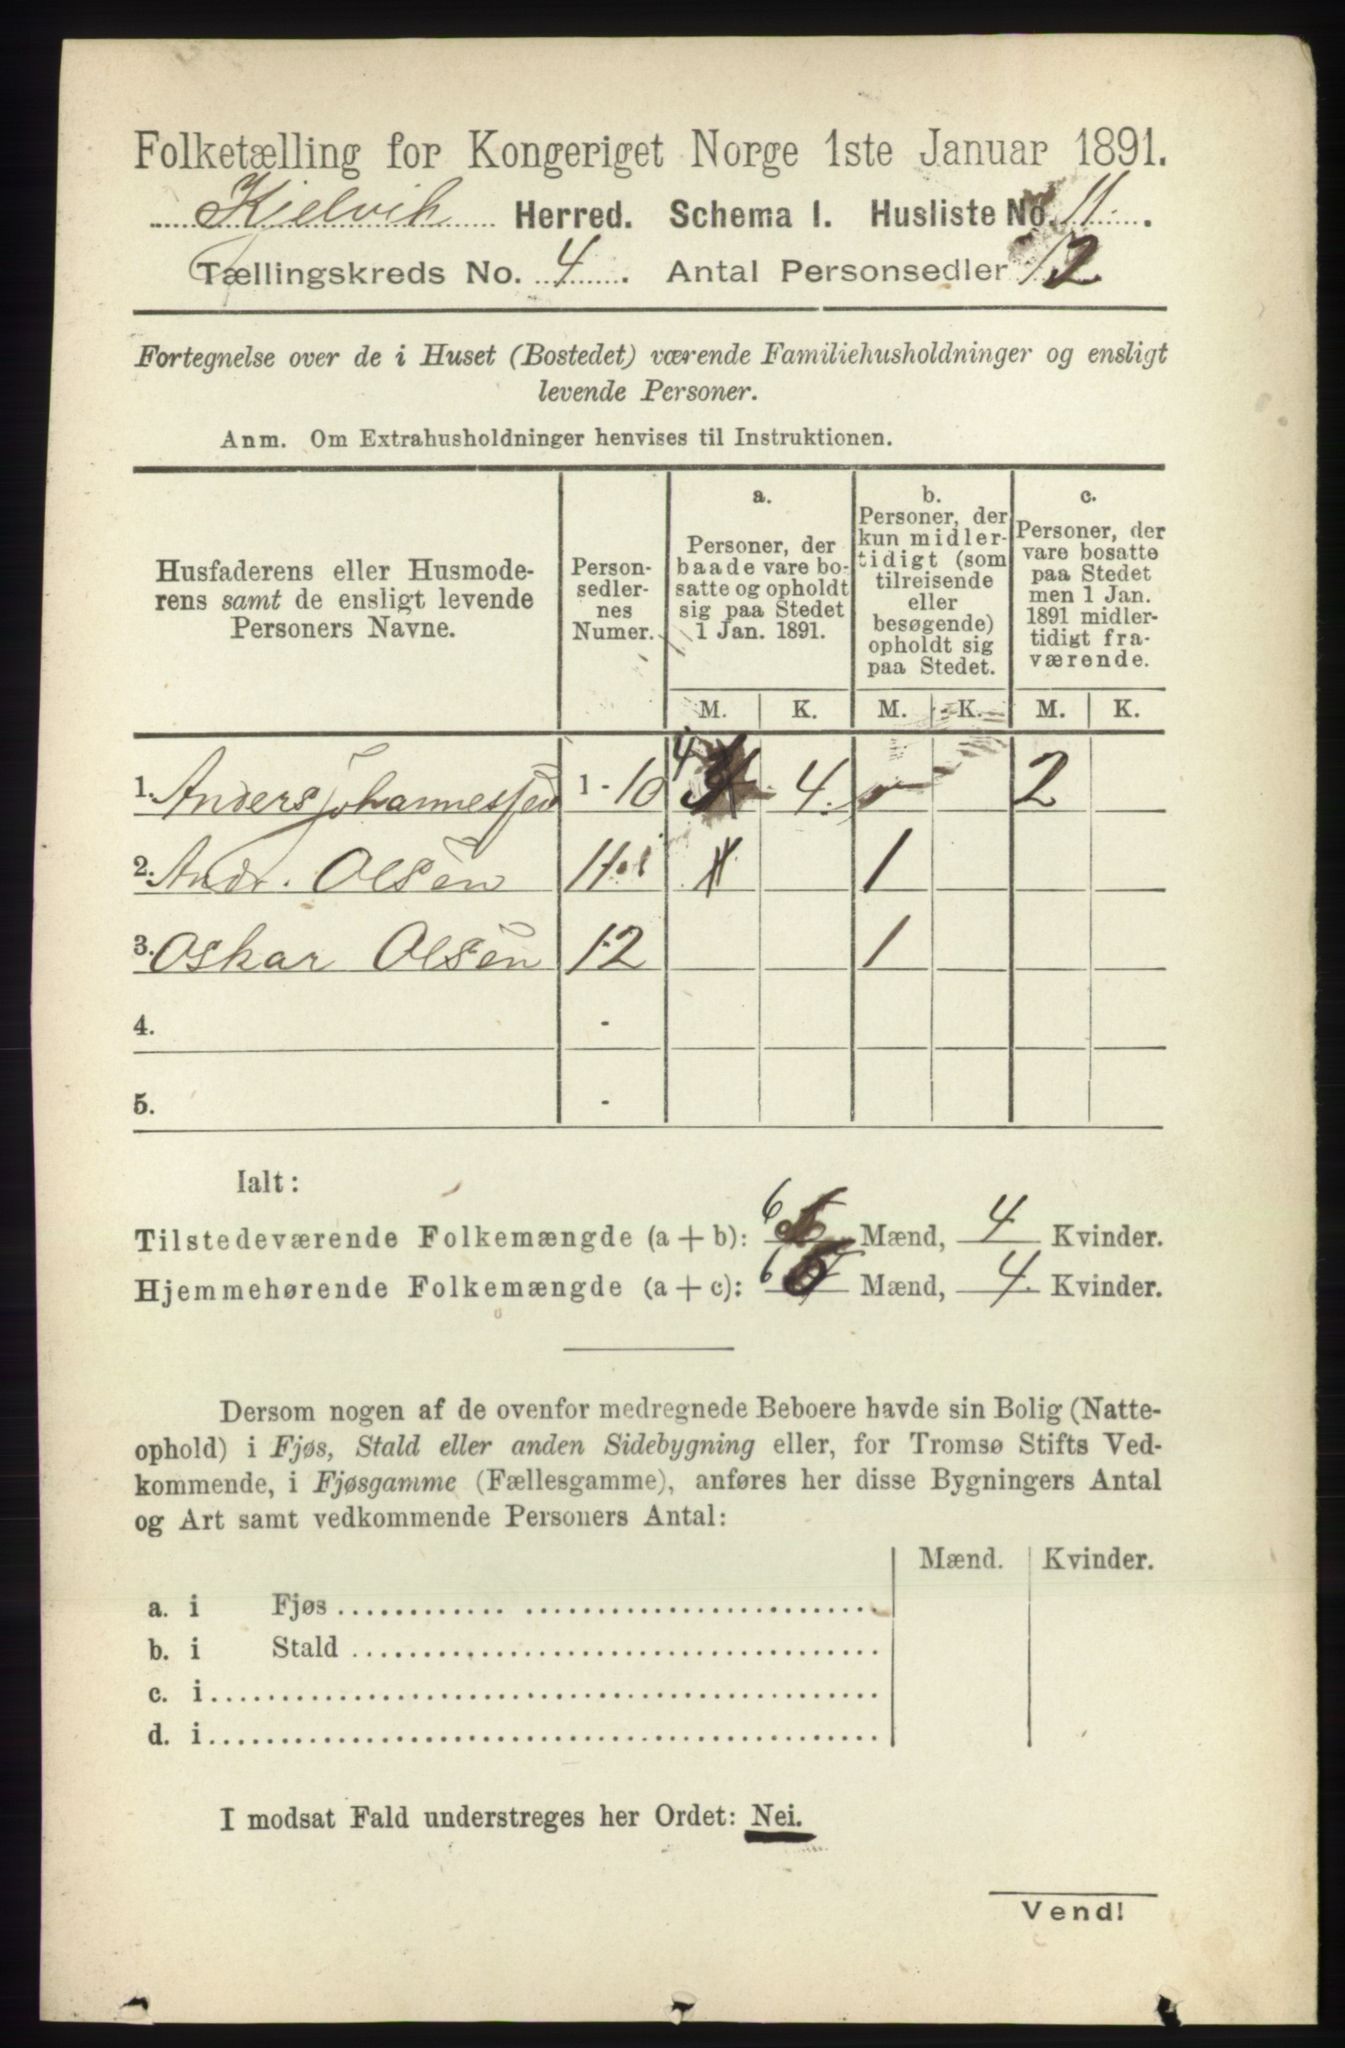 Folketælling for Kongeriget Norge 1ste Januar 1891.
Kjelvik Herred. Schema I. Husliste No. 11.
Tællingskreds No. 4. Antal Personsedler 12
Fortegnelse over de i Huset (Bostedet) værende Familiehusholdninger og ensligt
levende Personer.
Anm. Om Extrahusholdninger henvises til Instruktionen.
Husfaderens eller Husmode-
rens samt de ensligt levende
Personers Navne.
Person-
sedler-
nes
Numer.
a.
Personer, der
baade vare bo-
satte og opholdt
sig paa Stedet
1 Jan. 1891.
b.
Personer, der
kun midler-
tidigt (som
tilreisende
eller
besøgende)
opholdt sig
paa Stedet.
c.
Personer, der
vare bosatte
paa Stedet
men 1 Jan.
1891 midler-
tidigt fra-
værende.
M. K. M. K. M. K.
1. Anders Johannessen 1-10 4 4. - 2
2. Andr. Olsen 11 1
3. Oskar Olsen 12 1
4. -
5. -
Ialt:
Tilstedeværende Folkemængde (a + b): 6 Mænd, 4 Kvinder.
Hjemmehørende Folkemængde (a + c): 6 Mænd, 4. Kvinder.
Dersom nogen af de ovenfor medregnede Beboere havde sin Bolig (Natte-
ophold) i Fjøs, Stald eller anden Sidebygning eller, for Tromsø Stifts Ved-
kommende, i Fjøsgamme (Fællesgamme), anføres her disse Bygningers Antal
og Art samt vedkommende Personers Antal:
Mænd. Kvinder.
a. i Fjøs
b. i Stald
c. i
d. i
I modsat Fald understreges her Ordet: Nei.
Vend!